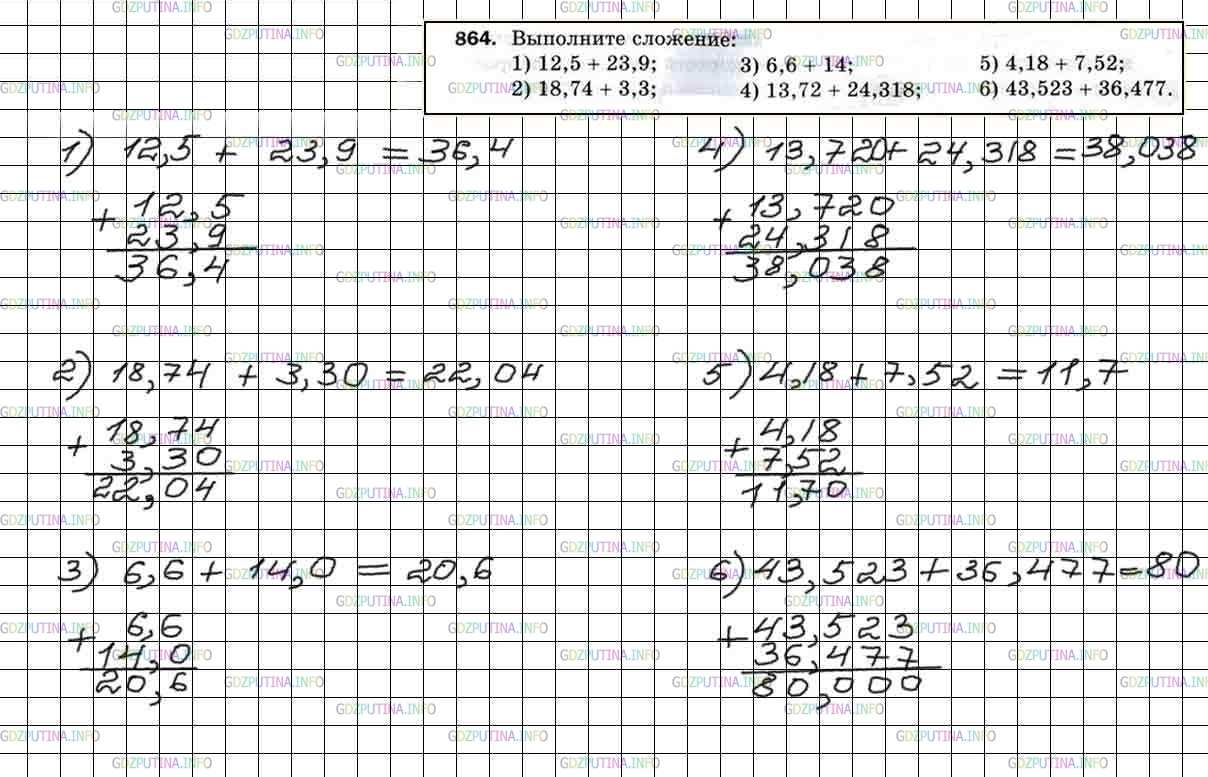 864. Выполните сложение:
1) 12,5 + 23,9;
2) 18,74 + 3,3;
3) 6,6 + 14;
4) 13,72 + 24,318;
5) 4,18 + 7,52;
6) 43,523 + 36,477.
1) 12,5 + 23,9 = 36,4
+ 12,5
23,9
36,4
2) 18,74 + 3,30 = 22,04
+ 18,74
3,30
22,04
3) 6,6 + 14,0 = 20,6
+ 6,6
14,0
20,6
4) 13,720 + 24,318 = 38,038
+ 13,720
24,318
38,038
5) 4,18 + 7,52 = 11,7
+ 4,18
7,52
11,70
6) 43,523 + 36,477 = 80
+ 43,523
36,477
80,000
GDZPUTINA.INFO